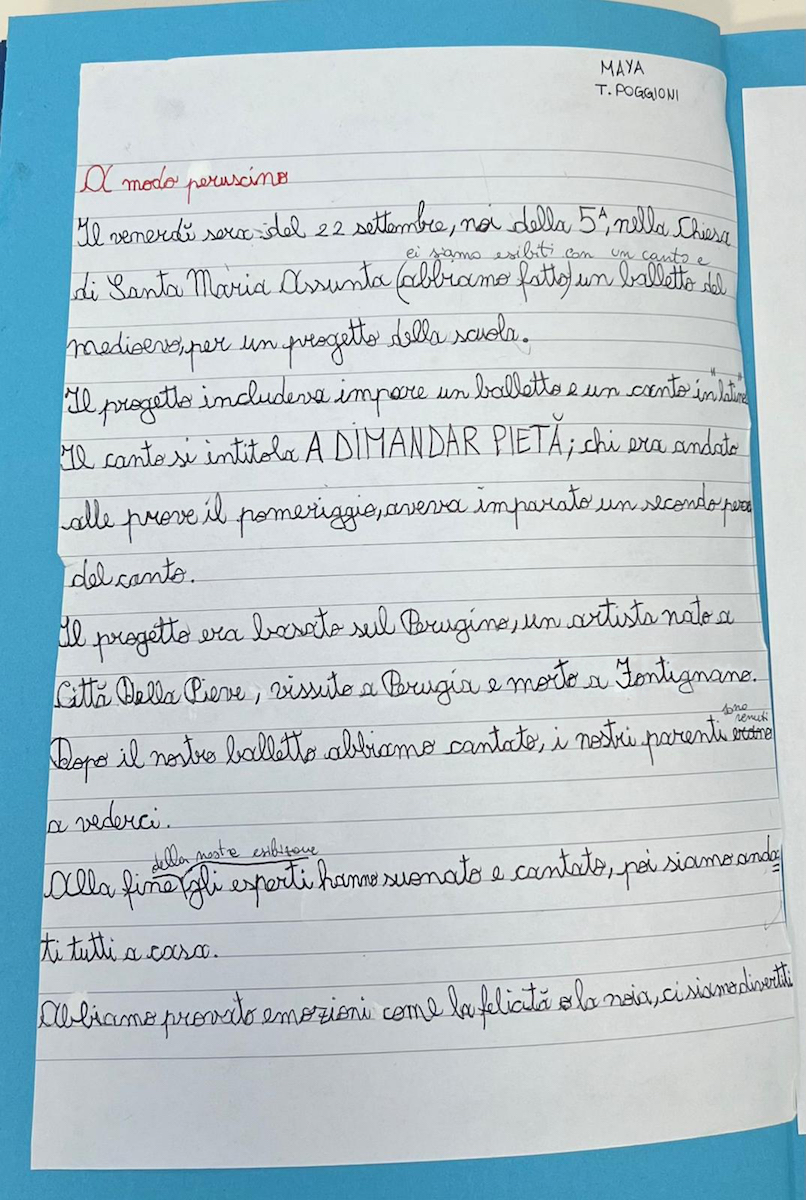 MAYA
T. POGGIONI
A modo peruscino
Il venerdì sera del 22 settembre, noi della 5ᴬ, nella Chiesa
ci siamo esibiti con un canto e
di Santa Maria Assunta (abbiamo fatto) un balletto del
medioevo, per un progetto della scuola.
Il progetto includeva impare un balletto e un canto in "latino"
Il canto si intitola A DIMANDAR PIETÀ; chi era andato
alle prove il pomeriggio, aveva imparato un secondo
del canto.
Il progetto era basato sul Perugino, un artista nato a
Città Della Pieve, vissuto a Perugia e morto a Fontignano.
sono
venuti
Dopo il nostro balletto abbiamo cantato, i nostri parenti erano
a vederci.
della nostra esibizione
Alla fine (gli esperti hanno suonato e cantato, poi siamo anda=
ti tutti a casa.
Abbiamo provato emozioni come la felicità o la noia, ci siamo divertiti